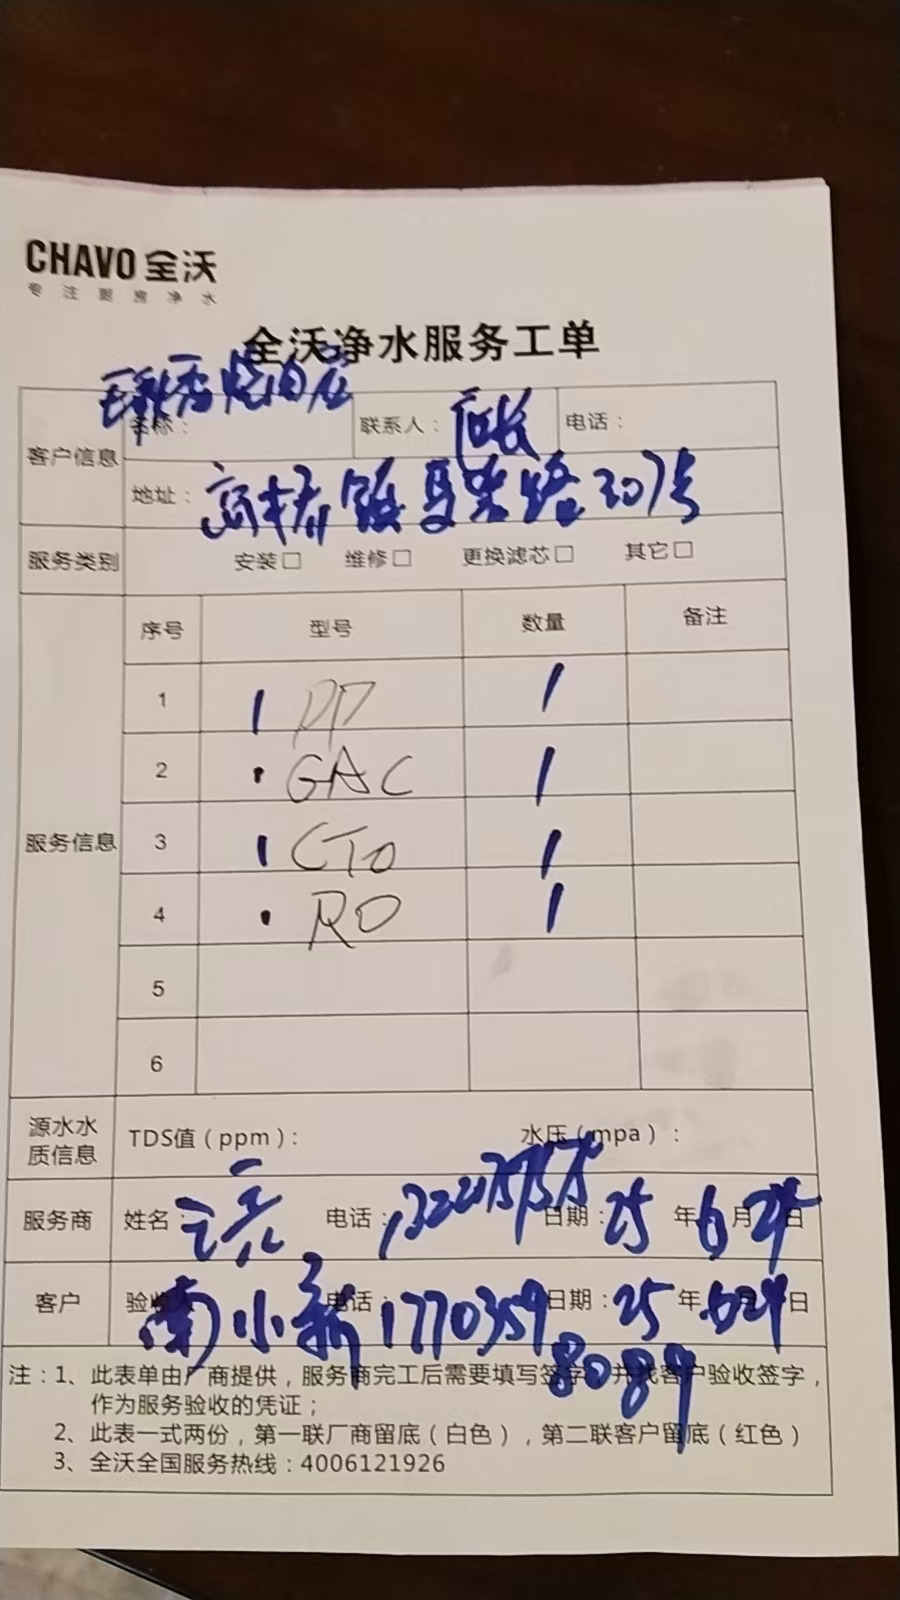 CHAVO 全沃
专注厨房净水
全沃净水服务工单
客户信息 名称： 烧肉店 联系人：店长 电话：
地址：高桥镇 路307号
服务类别 安装□ 维修□ 更换滤芯□ 其它□
服务信息 序号 型号 数量 备注
1 1 PP 1
2 · GAC 1
3 1 CTO 1
4 · RO 1
5
6
源水水质信息 TDS值（ppm）： 水压（mpa）：
服务商 姓名： 电话： 日期：25年6月24日
客户 验收 南小 电话：1770359 日期：25年6 24日
8089
注：1、此表单由厂商提供，服务商完工后需要填写签字，并找客户验收签字，
作为服务验收的凭证；
2、此表一式两份，第一联厂商留底（白色），第二联客户留底（红色）
3、全沃全国服务热线：4006121926